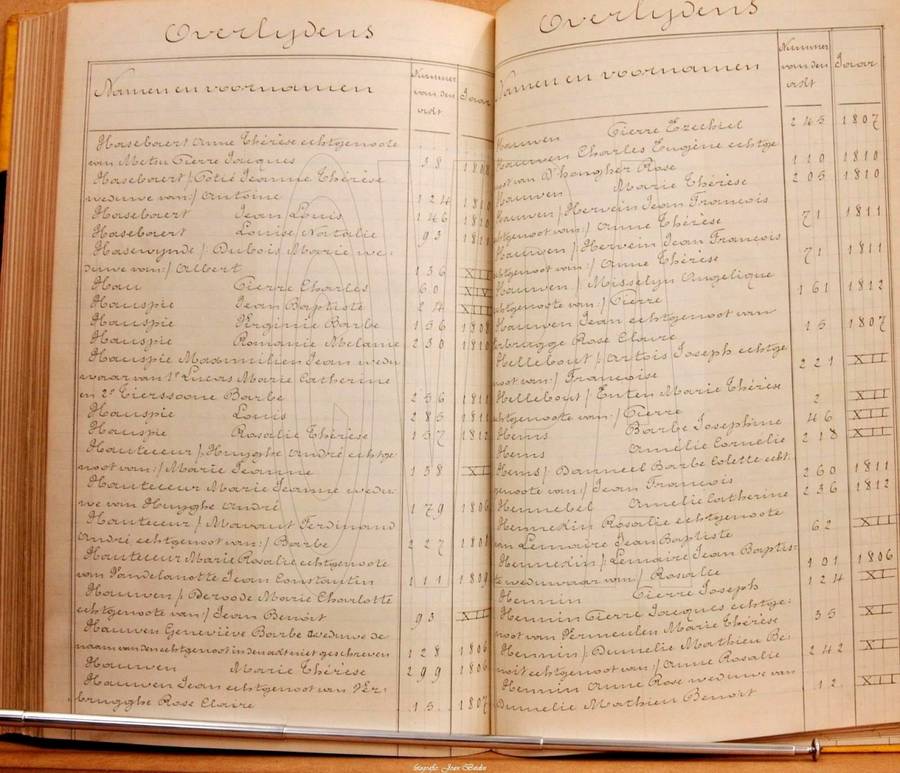 Overlydens
Namen en voornamen
Nummer van den ackt
Jaar
Hasebaert Anne Thérèse echtgenoote
van Metsu Pierre Jacques 38 1808
Hasebaert /: Cotié Jeanne Thérèse
weduwe van :/ Antoine 124 1810
Hasebaert Jean Louis 146 1810
Hasebaert Louise Natalie 93 1811
Hasewynde /: Dubois Marie we-
duwe van :/ Albert 136 XII
Hau Pierre Charles 60 XIV
Hauspie Jean Baptiste 24 XII
Hauspie Virginie Barbe 156 1808
Hauspie Romanie Melanie 230 1810
Hauspie Maximilien Jean wedu
waar van 1° Lucas Marie Catherine
en 2° Tierssoone Barbe 256 1811
Hauspie Louis 285 1811
Hauspie Rosalie Thérèse 157 1812
Hauteceur /: Huyghe André echtge-
noot van :/ Marie Jeanne 138 XI
Hauteceur Marie Jeanne wedu-
we van Huyghe André 179 1806
Hauteceur / Ferdinand
André echtgenoot van :/ Barbe 227
Hauteceur Marie Rosalie echtgenoote
van Vandelanotte Jean Constantin 111 1809
Hauwen /: Deroode Marie Charlotte
echtgenoote van :/ Jean Benoit 93 XII
Hauwen Geneviève Barbe weduwe de
naam van den echtgenoot in den adt niet geschreven 128 1806
Hauwen Marie Thérèse 299 1806
Hauwen Jean echtgenoot van Ver-
brugghe Rose Claire 15 1807
Overlydens
Namen en voornamen
Nummer van den ackt
Jaar
Hauwen Pierre Ezechiel 245 1807
Hauwen Charles Eugène echtge
noot van D'hongher Rose 110 1810
Hauwen Marie Thérèse 205 1810
Hauwen /: Hervein Jean François
echtgenoot van :/ Anne Thérèse 71 1811
Hauwen /: Hervein Jean François
echtgenoot van :/ Anne Thérèse 71 1811
Hauwen /: Misselyn Angelique
echtgenoote van :/ Pierre 161 1812
Hauwen Jean echtgenoot van
Verbrugge Rose Claire 15 1807
Hellebout /: Artois Joseph echtge
noot van :/ Françoise 221 XII
Hellebout /: Euten Marie Thérèse
echtgenoote van :/ Pierre 2 XII
Hems Barbe Josephine 46 XII
Hems Amélie Cornélie 218 XII
Hems /: Danneel Barbe Colette echt-
genoote van :/ Jean François 260 1811
Hennebel Amelie Catherine 236 1812
Hennekin Rosalie echtgenoote
van Lemaire Jean Baptiste 62 XII
Hennekin /: Lemaire Jean Baptis-
te weduwaar van :/ Rosalie 101 1806
Hennin Pierre Joseph 124 XI
Hennin Pierre Jacques echtge-
noot van Vermeulen Marie Thérèse 35 XI
Hennin /: Dumelie Mathieu Be-
noit echtgenoot van :/ Anne Rosalie 242 XI
Hennin Anne Rose weduwe van
Dumelie Mathieu Benoit 12 XII